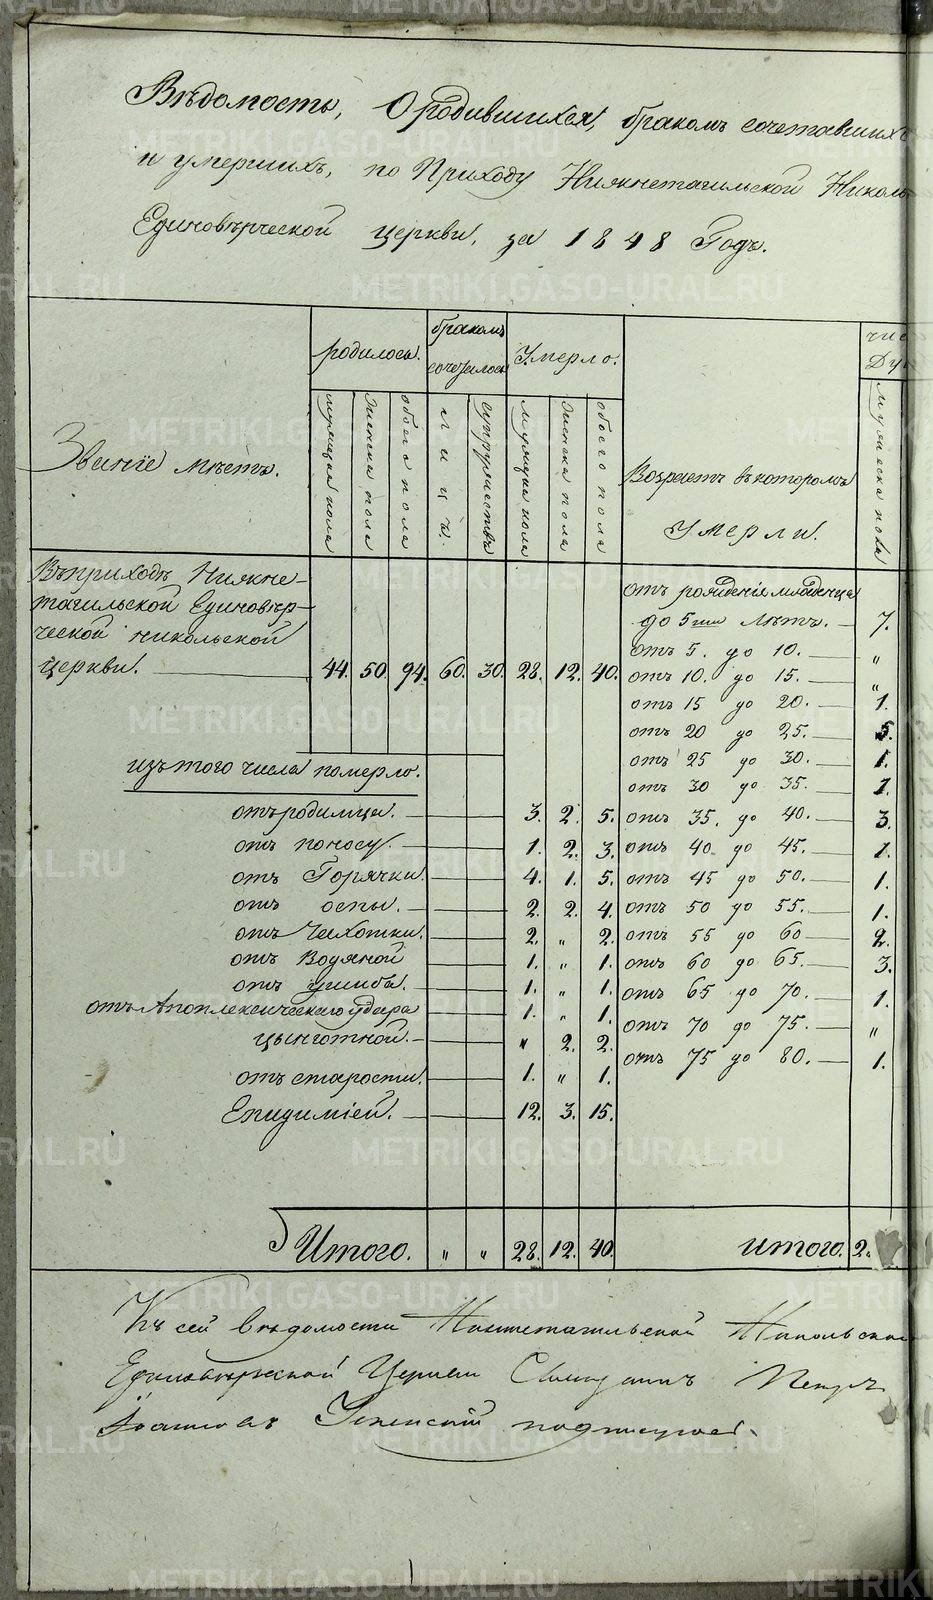 Вѣдомость, О родившихся, бракомъ сочетавшихъ
и умершихъ, по Приходу Нижнетагильской Николь
Единовѣрческой церкви, за 1848 Годъ.
Званіе мѣстъ.
родилось.
бракомъ сочеталось
Умерло.
Возрастъ въ которомъ
умерли.
чис
Ду
мужеска пола
женска пола
обоего пола
лицъ.
супружествъ
мужеска пола
женска пола
обоего пола
мужеска пола
Въ приходѣ Нижне-
тагильской Единовѣр-
ческой Никольской
церкви. 44. 50. 94. 60. 30. 28. 12. 40.
изъ того числа померло.
отъ родимца. 3. 2. 5.
отъ поносу. 1. 2. 3.
отъ Горячки. 4. 1. 5.
отъ оспы. 2. 2. 4.
отъ Чахотки. 2. „ 2.
отъ Водяной 1. „ 1.
отъ ушиба. 1. „ 1.
отъ Апоплексическаго удара 1. „ 1.
цынготной. „ 2. 2.
отъ старости. 1. „ 1.
Епидиміей. 12. 3. 15.
Итого. „ „ 28. 12. 40.
отъ рожденія младенца
до 5ти лѣтъ. 7.
отъ 5. до 10. „
отъ 10. до 15. „
отъ 15 до 20. 1.
отъ 20 до 25. 5.
отъ 25 до 30. 1.
отъ 30 до 35. 1.
отъ 35. до 40. 3.
отъ 40 до 45. 1.
отъ 45 до 50. 1.
отъ 50 до 55. 1.
отъ 55 до 60 2.
отъ 60 до 65. 3.
отъ 65 до 70. 1.
отъ 70 до 75. „
отъ 75 до 80. 1.
итого. 2
Къ сей вѣдомости Нижнетагильской Никольской
Единовѣрческой Церкви Священникъ Петръ
Іоанновъ Успенскій подписуюсь.
METRIKI.GASO-URAL.RU